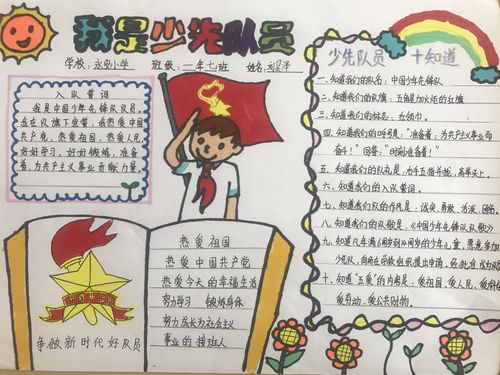 我是少先队员
学校：永安小学 班级：一年七班 姓名：
入队誓词
我是中国少年先锋队队员。
我在队旗下宣誓：我热爱中国
共产党，热爱祖国，热爱人民，
好好学习，好好锻炼，准备
着：为共产主义事业贡献力量。
热爱祖国
热爱中国共产党
热爱今天的幸福生活
努力学习 锻炼身体
努力成长为社会主义
事业的接班人
中国少先队
争做新时代好队员
少先队员 十知道
一、知道我们的队名：中国少年先锋队
二、知道我们的队旗：五角星加火炬的红旗
三、知道我们的标志：红领巾。
四、知道我们的呼号是："准备着：为共产主义事业而
奋斗！"回答："时刻准备着！"
五、知道我们的队礼是：右手五指并拢，高举头上。
六、知道我们的入队誓词。
七、知道我们队的作风是：诚实、勇敢、为派、团结。
八、知道我们的队歌是：《中国少年先锋队队歌》
九、知道凡年满6周岁到14周岁的少年儿童，愿意参加
少先队，
十、知道"五爱"的内容是：爱祖国、爱人民、
爱劳动、爱公共财物。